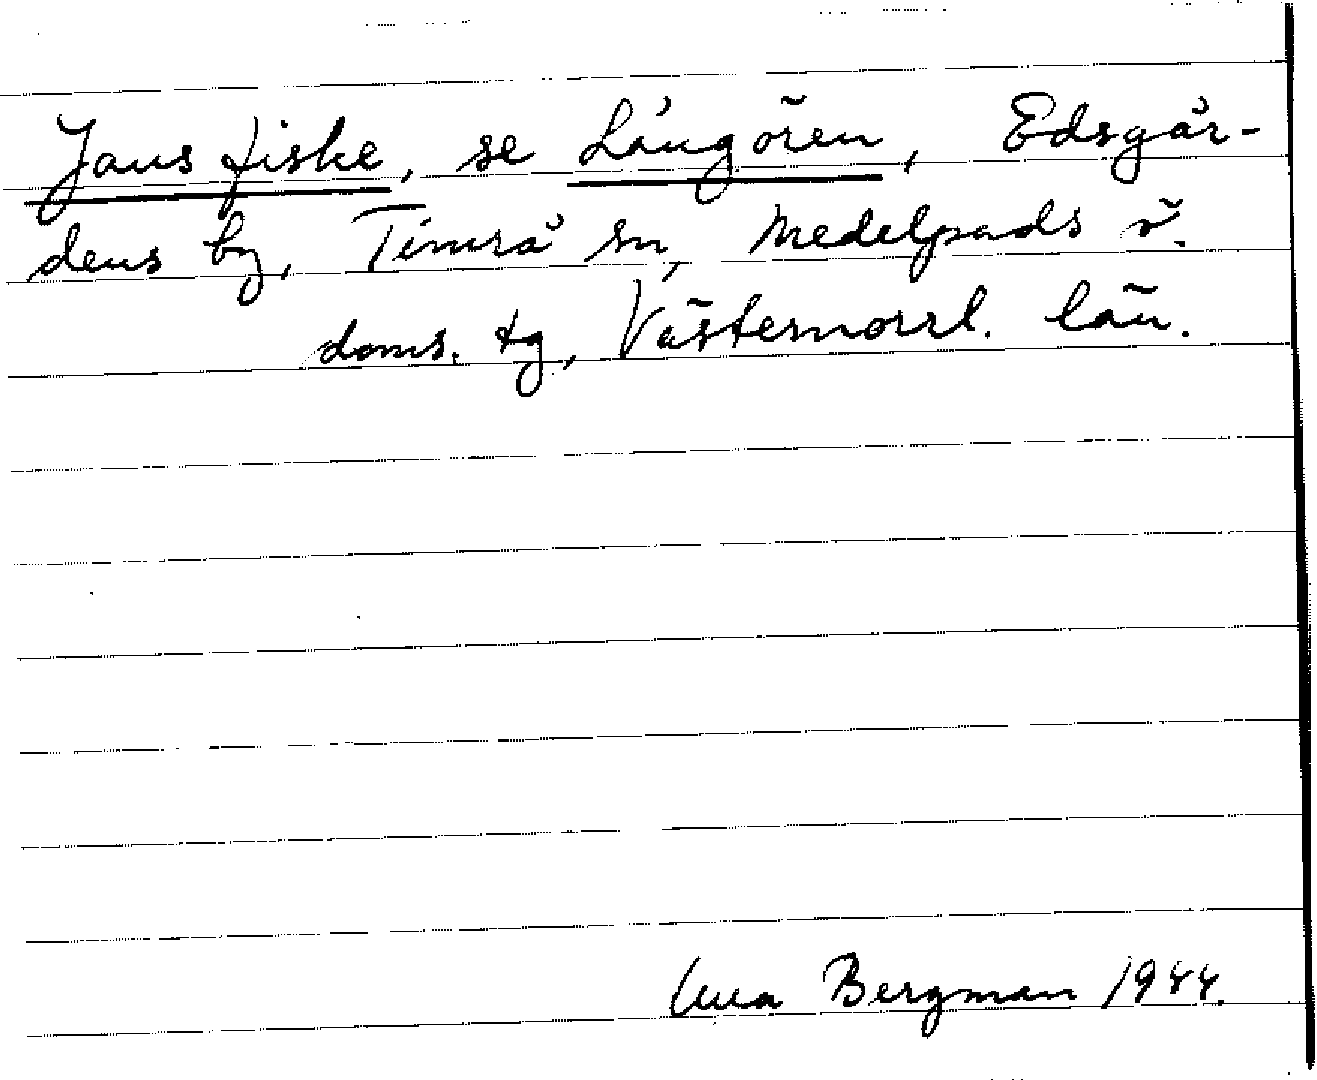 Jans fiske, se Långören, Edsgår-
dens by, Timrå sn, Medelpads v.
doms. tg, Västernorrl. län.
Bergman 1944.